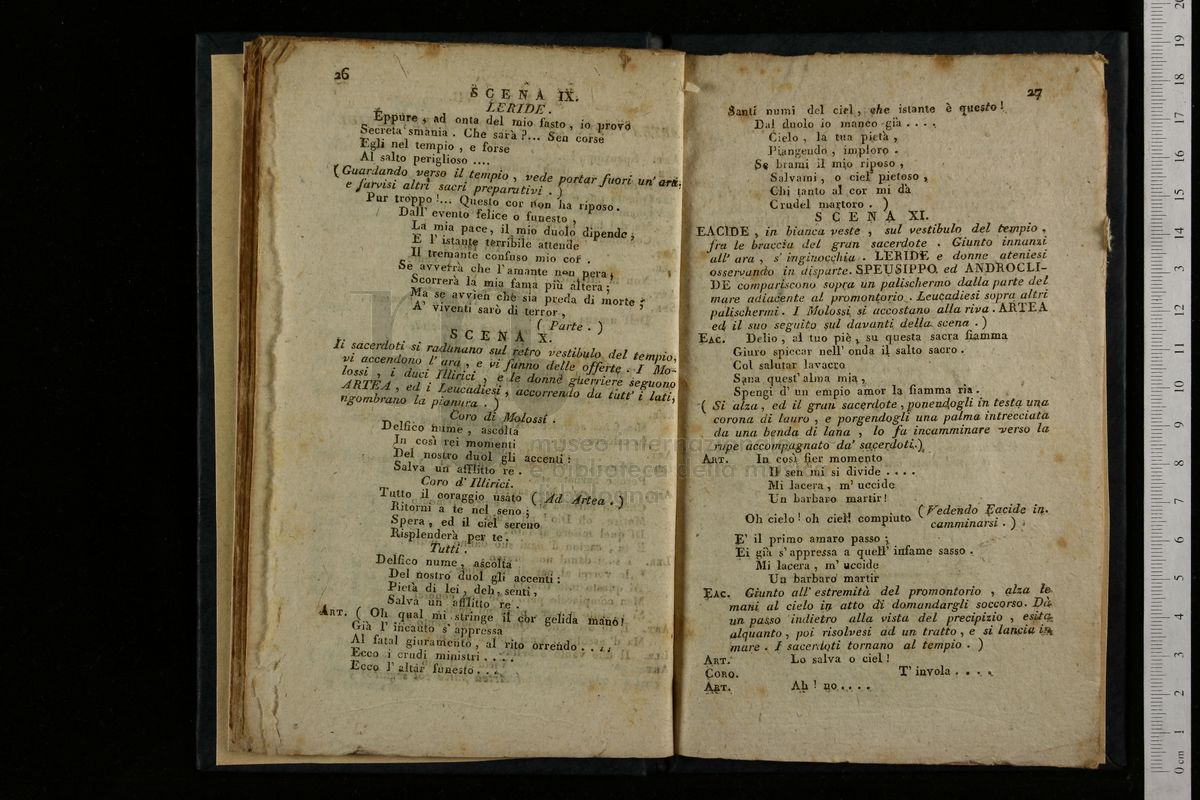 26
SCENA IX.
LERIDE.
Eppure, ad onta del mio fasto, io provo
Secreta smania. Che sarà?... Sen corse
Egli nel tempio, e forse
Al salto periglioso ....
(Guardando verso il tempio, vede portar fuori un' ara,
e farvisi altri sacri preparativi.)
Pur troppo!... Questo cor non ha riposo.
Dall' evento felice o funesto,
La mia pace, il mio duolo dipende;
E l'istante terribile attende
Il tremante confuso mio cor.
Se avverrà che l'amante non pera,
Scorrerà la mia fama più altera;
Ma se avvien che sia preda di morte,
A' viventi sarò di terror,
(Parte.)
SCENA X.
Ii sacerdoti si radunano sul retro vestibulo del tempio,
vi accendono l'ara, e vi fanno delle offerte. I Mo-
lossi, i duci Illirici, e le donne guerriere seguono
ARTEA, ed i Leucadiesi, accorrendo da tutt' i lati,
ngombrano la pianura.)
Coro di Molossi.
Delfico nume, ascolta
In così rei momenti
Del nostro duol gli accenti:
Salva un afflitto re.
Coro d' Illirici.
Tutto il coraggio usato (Ad Artea.)
Ritorni a te nel seno;
Spera, ed il ciel sereno
Risplenderà per te.
Tutti.
Delfico nume, ascolta
Del nostro duol gli accenti:
Pietà di lei, deh, senti,
Salva un afflitto re.
ART. (Oh qual mi stringe il cor gelida mano!
Già l'incauto s'appressa
Al fatal giuramento, al rito orrendo....
Ecco i crudi ministri....
Ecco l'altar funesto...
27
Santi numi del ciel, che istante è questo!
Dal duolo io manco già....
Cielo, la tua pietà,
Piangendo, imploro.
Se brami il mio riposo,
Salvami, o ciel pietoso,
Chi tanto al cor mi dà
Crudel martoro.)
SCENA XI.
EACIDE, in bianca veste, sul vestibulo del tempio,
fra le braccia del gran sacerdote. Giunto innanzi
all' ara, s'inginocchia. LERIDE e donne ateniesi
osservando in disparte. SPEUSIPPO ed ANDROCLI-
DE compariscono sopra un palischermo dalla parte del
mare adiacente al promontorio. Leucadiesi sopra altri
palischermi. I Molossi si accostano alla riva. ARTEA
ed il suo seguito sul davanti della scena.)
EAC. Delio, al tuo piè, su questa sacra fiamma
Giuro spiccar nell' onda il salto sacro.
Col salutar lavacro
Sana quest' alma mia,
Spengi d' un empio amor la fiamma ria.
(Si alza, ed il gran sacerdote, ponendogli in testa una
corona di lauro, e porgendogli una palma intrecciata
da una benda di lana, lo fa incamminare verso la
rupe accompagnato da' sacerdoti.)
ART. In così fier momento
Il sen mi si divide....
Mi lacera, m' uccide
Un barbaro martir!
Oh cielo! oh ciel! compiuto (Vedendo Eacide in-
camminarsi.)
E' il primo amaro passo;
Ei già s'appressa a quell' infame sasso.
Mi lacera, m' uccide
Un barbaro martir
EAC. Giunto all' estremità del promontorio, alza le
mani al cielo in atto di domandargli soccorso. Dà
un passo indietro alla vista del precipizio, esita
alquanto, poi risolvesi ad un tratto, e si lancia in
mare. I sacerdoti tornano al tempio.)
ART. Lo salva o ciel!
CORO. T' invola....
ART. Ah! no....
museo internazionale
e biblioteca della musica
di bologna